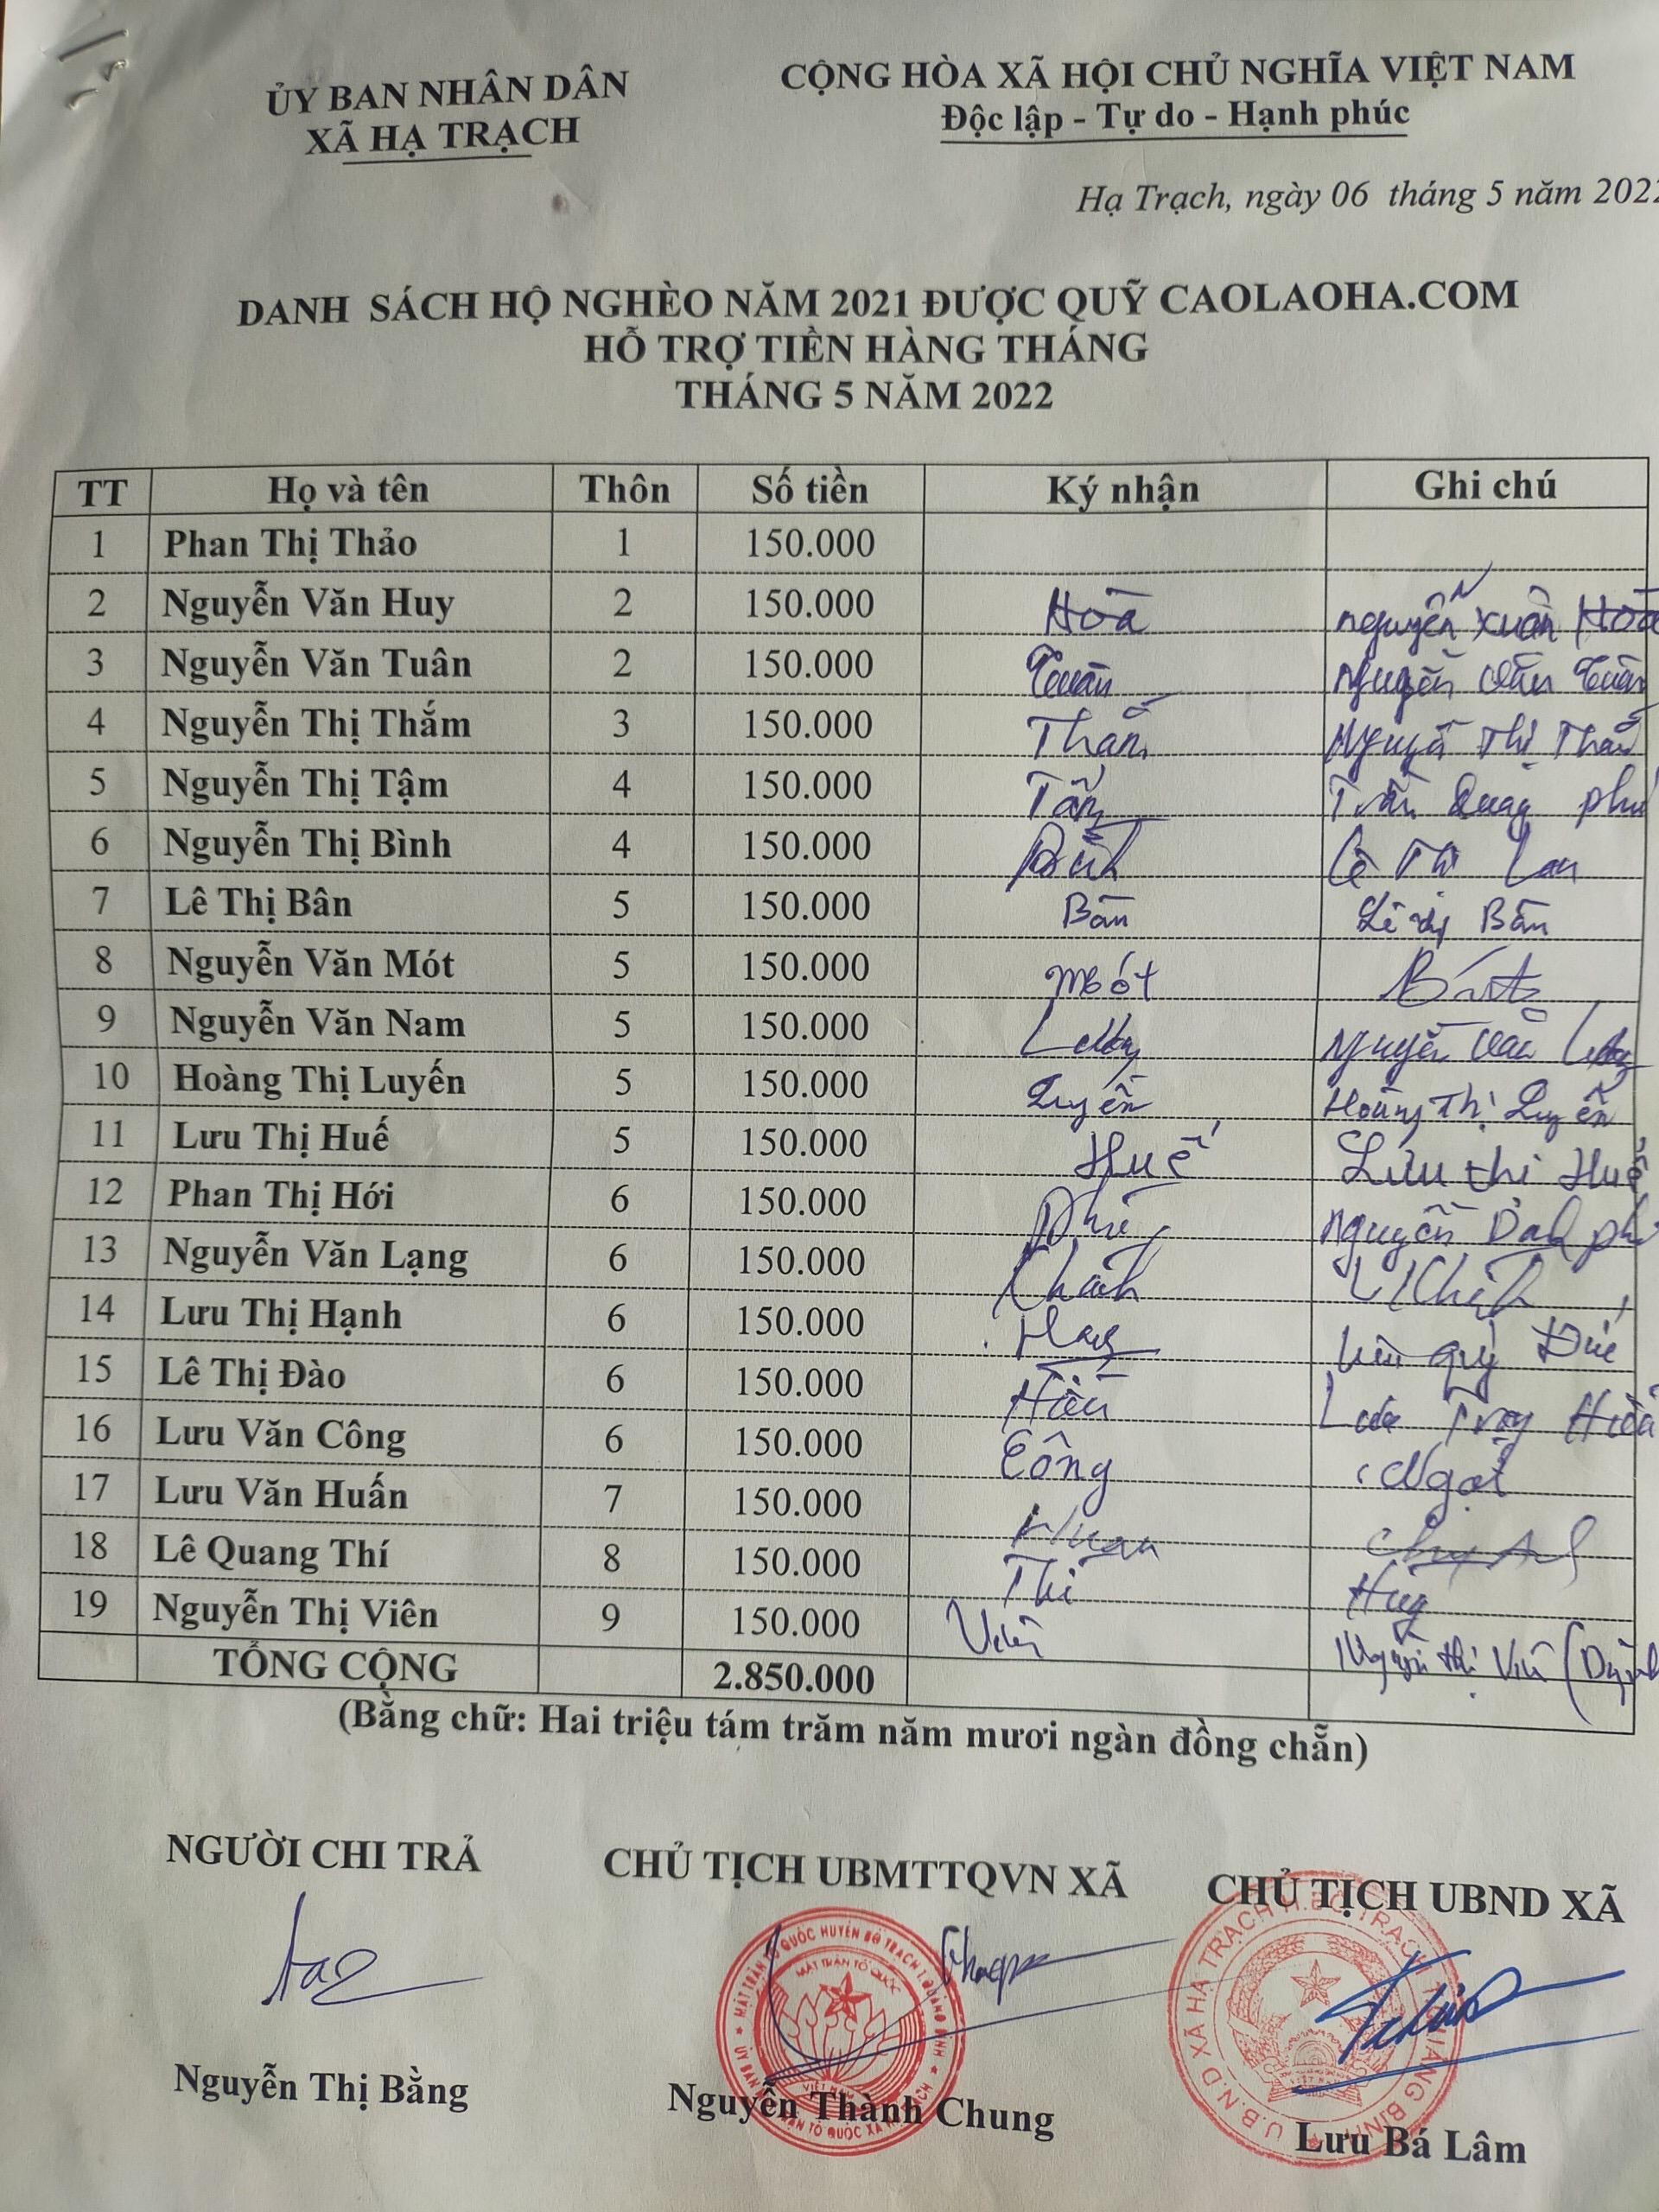 ỦY BAN NHÂN DÂN
XÃ HẠ TRẠCH
CỘNG HÒA XÃ HỘI CHỦ NGHĨA VIỆT NAM
Độc lập - Tự do - Hạnh phúc
Hạ Trạch, ngày 06 tháng 5 năm 2022
DANH SÁCH HỘ NGHÈO NĂM 2021 ĐƯỢC QUỸ CAOLAOHA.COM
HỖ TRỢ TIỀN HÀNG THÁNG
THÁNG 5 NĂM 2022
TT Họ và tên Thôn Số tiền Ký nhận Ghi chú
1 Phan Thị Thảo 1 150.000
2 Nguyễn Văn Huy 2 150.000 Hòa Nguyễn Xuân Hòa
3 Nguyễn Văn Tuân 2 150.000 Tuân Nguyễn Văn Tuân
4 Nguyễn Thị Thắm 3 150.000 Thắm Nguyễn Thị Thắm
5 Nguyễn Thị Tậm 4 150.000 Trần Quang Phú
6 Nguyễn Thị Bình 4 150.000 Bình Lê Thị Lan
7 Lê Thị Bân 5 150.000 Bân Lê Thị Bân
8 Nguyễn Văn Mót 5 150.000 Mót
9 Nguyễn Văn Nam 5 150.000 Nguyễn Văn
10 Hoàng Thị Luyến 5 150.000 Luyến Hoàng Thị Luyến
11 Lưu Thị Huế 5 150.000 Huế Lưu Thị Huế
12 Phan Thị Hới 6 150.000 Nguyễn
13 Nguyễn Văn Lạng 6 150.000
14 Lưu Thị Hạnh 6 150.000 quý Đức
15 Lê Thị Đào 6 150.000 Hiền
16 Lưu Văn Công 6 150.000 Công Ngọt
17 Lưu Văn Huấn 7 150.000 Huấn
18 Lê Quang Thí 8 150.000 Thí
19 Nguyễn Thị Viên 9 150.000 Viên Nguyễn Thị Viên
TỔNG CỘNG 2.850.000
(Bằng chữ: Hai triệu tám trăm năm mươi ngàn đồng chẵn)
NGƯỜI CHI TRẢ
CHỦ TỊCH UBMTTQVN XÃ
CHỦ TỊCH UBND XÃ
MẶT TRẬN TỔ QUỐC
VIỆT NAM
U.B.N.D XÃ HẠ TRẠCH H.BỐ TRẠCH T.QUẢNG BÌNH
Nguyễn Thị Bằng
Nguyễn Thành Chung
Lưu Bá Lâm